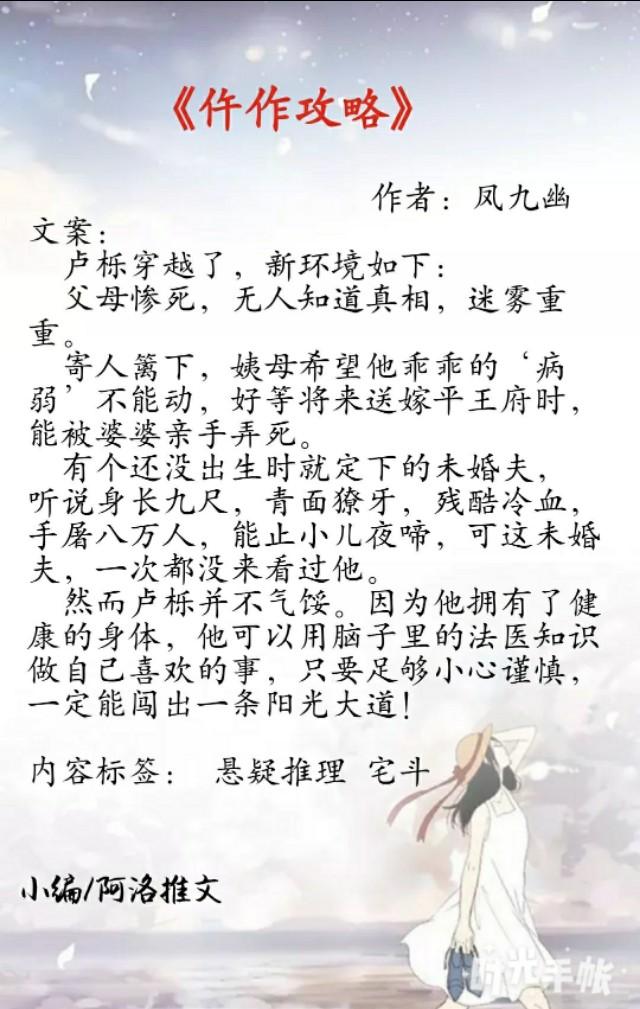 《仵作攻略》
作者：凤九幽
文案：
卢栎穿越了，新环境如下：
父母惨死，无人知道真相，迷雾重
重。
寄人篱下，姨母希望他乖乖的‘病
弱’不能动，好等将来送嫁平王府时，
能被婆婆亲手弄死。
有个还没出生时就定下的未婚夫，
听说身长九尺，青面獠牙，残酷冷血，
手屠八万人，能止小儿夜啼，可这未婚
夫，一次都没来看过他。
然而卢栎并不气馁。因为他拥有了健
康的身体，他可以用脑子里的法医知识
做自己喜欢的事，只要足够小心谨慎，
一定能闯出一条阳光大道！
内容标签： 悬疑推理 宅斗
小编/阿洛推文
时光手帐